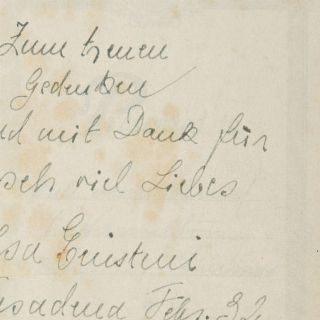 Zum treuen
Gedenken
nd mit Dank für
sch viel Liebes
lsa Einstein
asadena Febr. 32